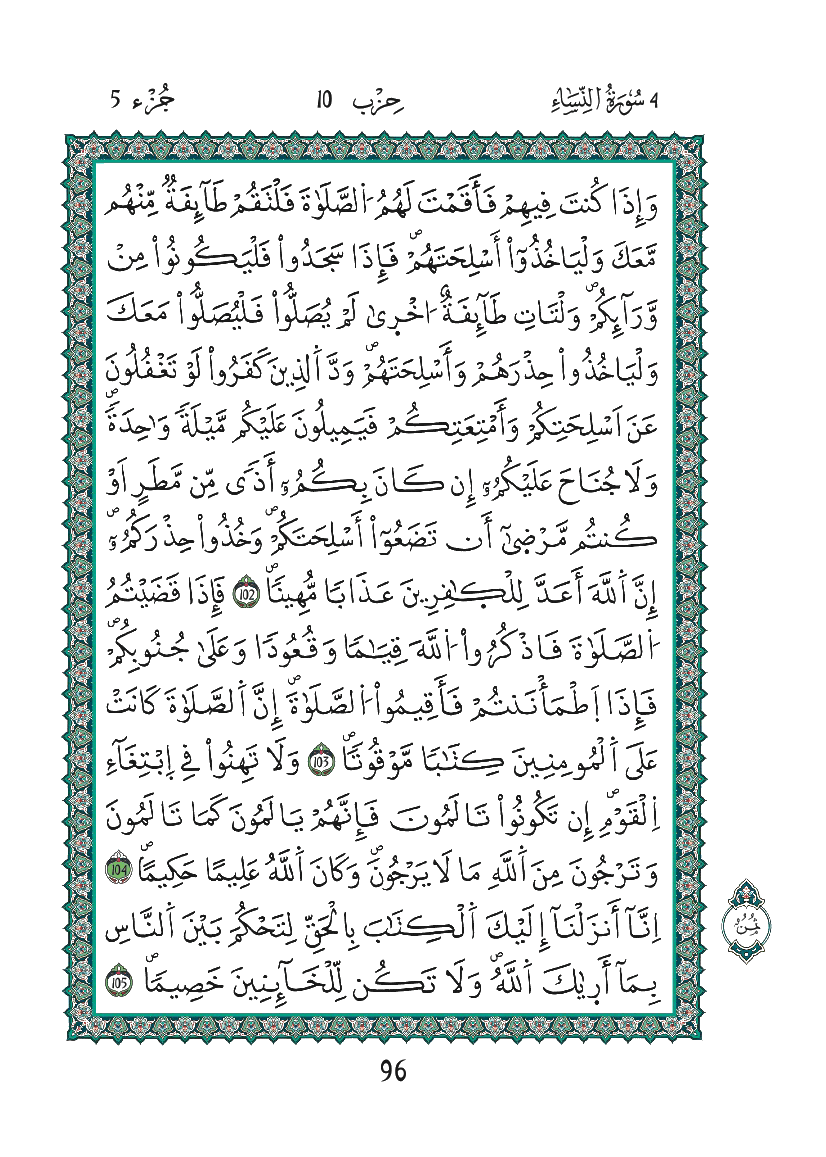 4 سُورَةُ النِّسَاءِ حِزْب 10 جُزْء 5
وَإِذَا كُنتَ فِيهِمْ فَأَقَمْتَ لَهُمُ اَ۬لصَّلَوٰةَ فَلْتَقُمْ طَآئِفَةٞ مِّنْهُم
مَّعَكَ وَلْيَاخُذُوٓاْ أَسْلِحَتَهُمْۖ فَإِذَا سَجَدُواْ فَلْيَكُونُواْ مِنْ
وَّرَآئِكُمْۖ وَلْتَاتِ طَآئِفَةٌ اُخْر۪يٰ لَمْ يُصَلُّواْ فَلْيُصَلُّواْ مَعَكَ
وَلْيَاخُذُواْ حِذْرَهُمْ وَأَسْلِحَتَهُمْۖ وَدَّ اَ۬لذِينَ كَفَرُواْ لَوْ تَغْفُلُونَ
عَنَ اَسْلِحَتِكُمْ وَأَمْتِعَتِكُمْ فَيَمِيلُونَ عَلَيْكُم مَّيْلَةٗ وَٰحِدَةٗۖ
وَلَا جُنَاحَ عَلَيْكُمُۥٓ إِن كَانَ بِكُمُۥٓ أَذيٗ مِّن مَّطَرٍ اَوْ
كُنتُم مَّرْض۪يٰٓ أَن تَضَعُوٓاْ أَسْلِحَتَكُمْۖ وَخُذُواْ حِذْرَكُمُۥٓۖ
إِنَّ اَ۬للَّهَ أَعَدَّ لِلْكٰ۪فِرِينَ عَذَاباٗ مُّهِيناٗۖ 102 فَإِذَا قَضَيْتُمُ
اُ۬لصَّلَوٰةَ فَاذْكُرُواْ اُ۬للَّهَ قِيَٰماٗ وَقُعُوداٗ وَعَلَيٰ جُنُوبِكُمْۖ
فَإِذَا اَ۪طْمَأْنَنتُمْ فَأَقِيمُواْ اُ۬لصَّلَوٰةَۖ إِنَّ اَ۬لصَّلَوٰةَ كَانَتْ
عَلَي اَ۬لْمُومِنِينَ كِتَٰباٗ مَّوْقُوتاٗۖ 103 وَلَا تَهِنُواْ فِي اِ۪بْتِغَآءِ
اِ۬لْقَوْمِۖ إِن تَكُونُواْ تَالَمُونَ فَإِنَّهُمْ يَالَمُونَ كَمَا تَالَمُونَ
وَتَرْجُونَ مِنَ اَ۬للَّهِ مَا لَا يَرْجُونَۖ وَكَانَ اَ۬للَّهُ عَلِيماً حَكِيماًۖ 104
اِنَّآ أَنزَلْنَآ إِلَيْكَ اَ۬لْكِتَٰبَ بِالْحَقِّ لِتَحْكُمَ بَيْنَ اَ۬لنَّاسِ
بِمَآ أَر۪يٰكَ اَ۬للَّهُۖ وَلَا تَكُن لِّلْخَآئِنِينَ خَصِيماٗۖ 105
ثمن
96